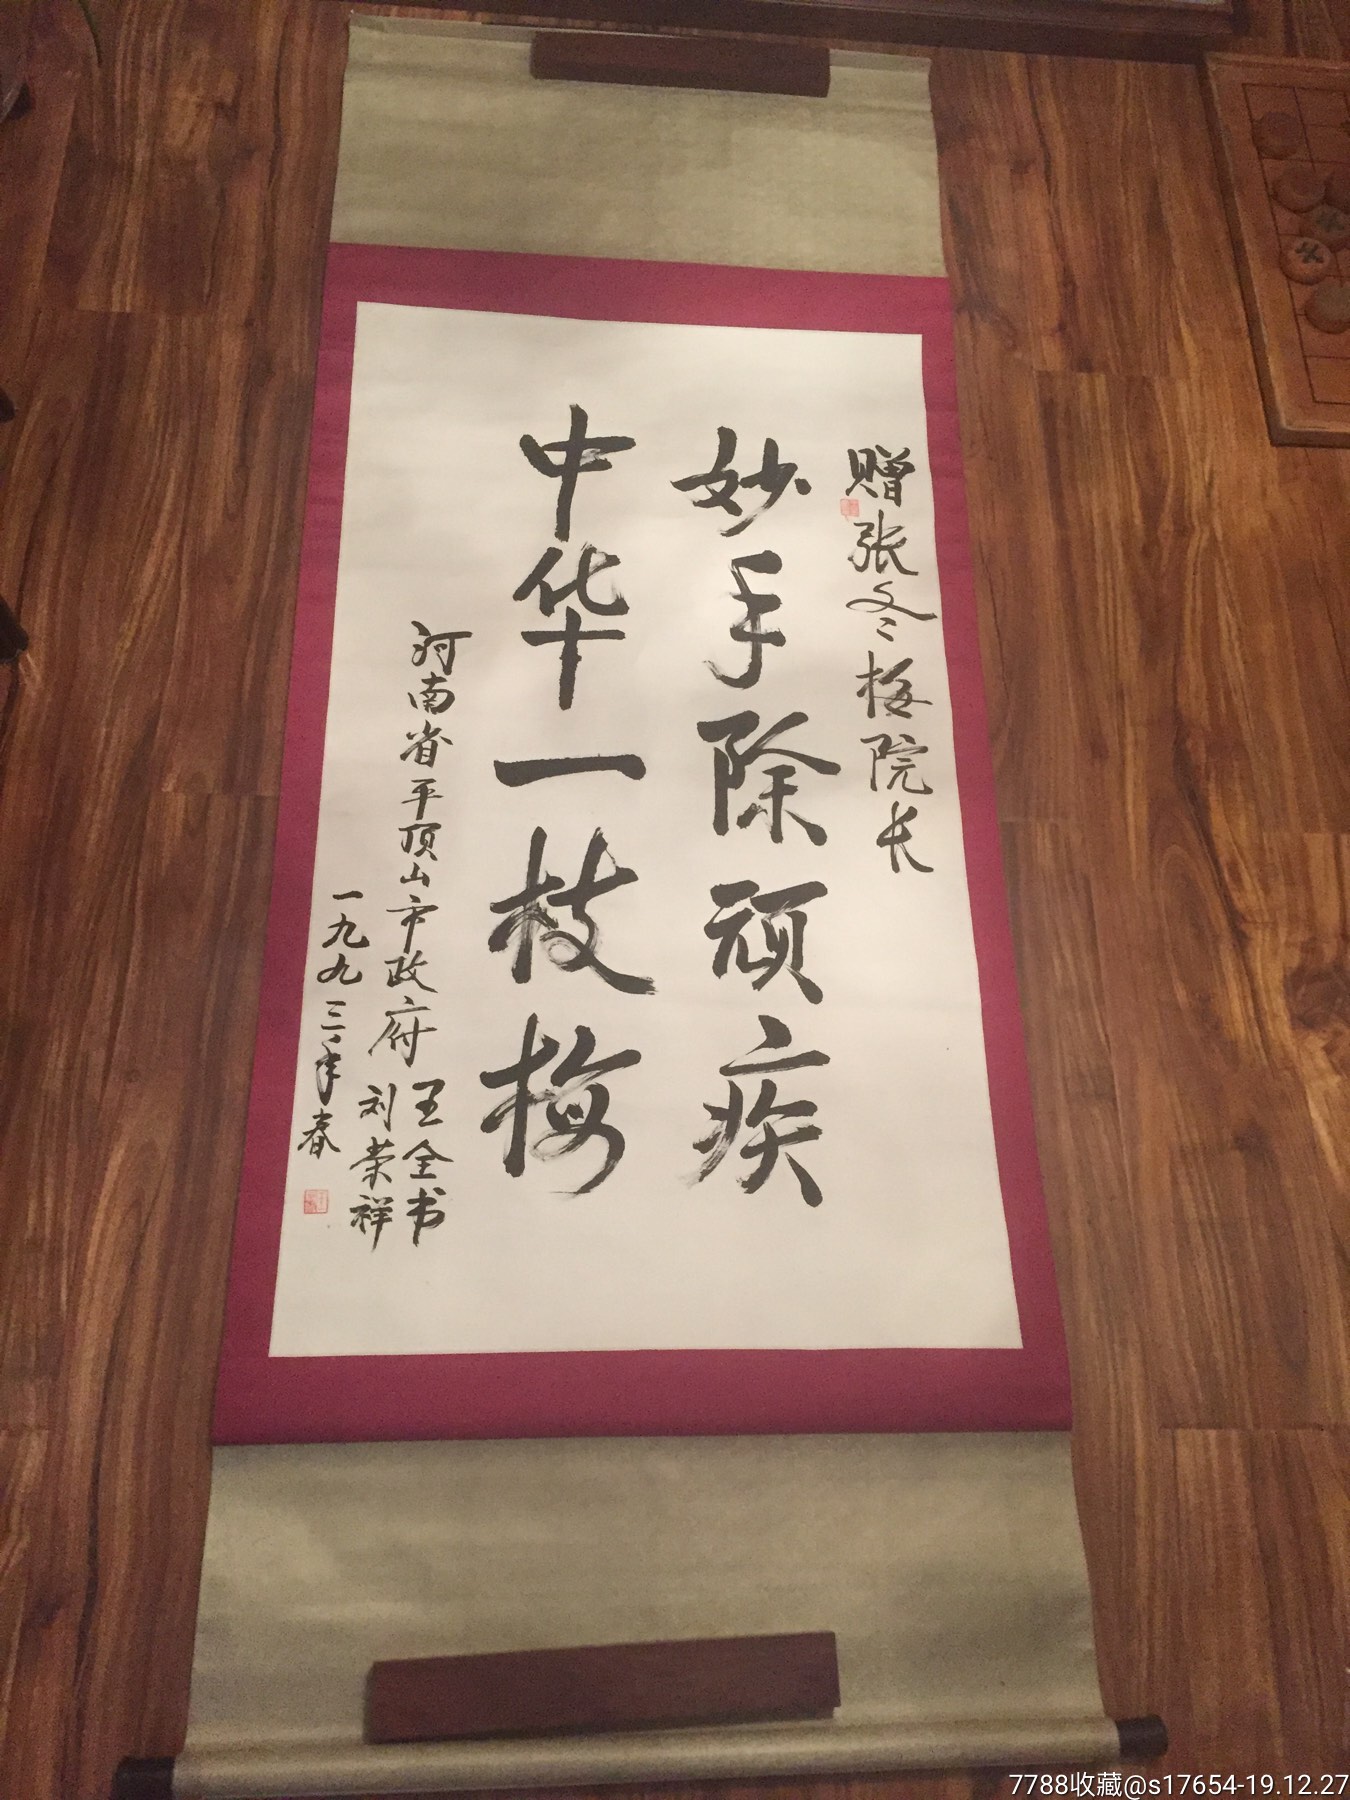 赠张冬梅院长
妙手除顽疾
中华一枝梅
河南省平顶山市政府
王全书
刘荣祥
一九九三年春
7788收藏@s17654-19.12.27